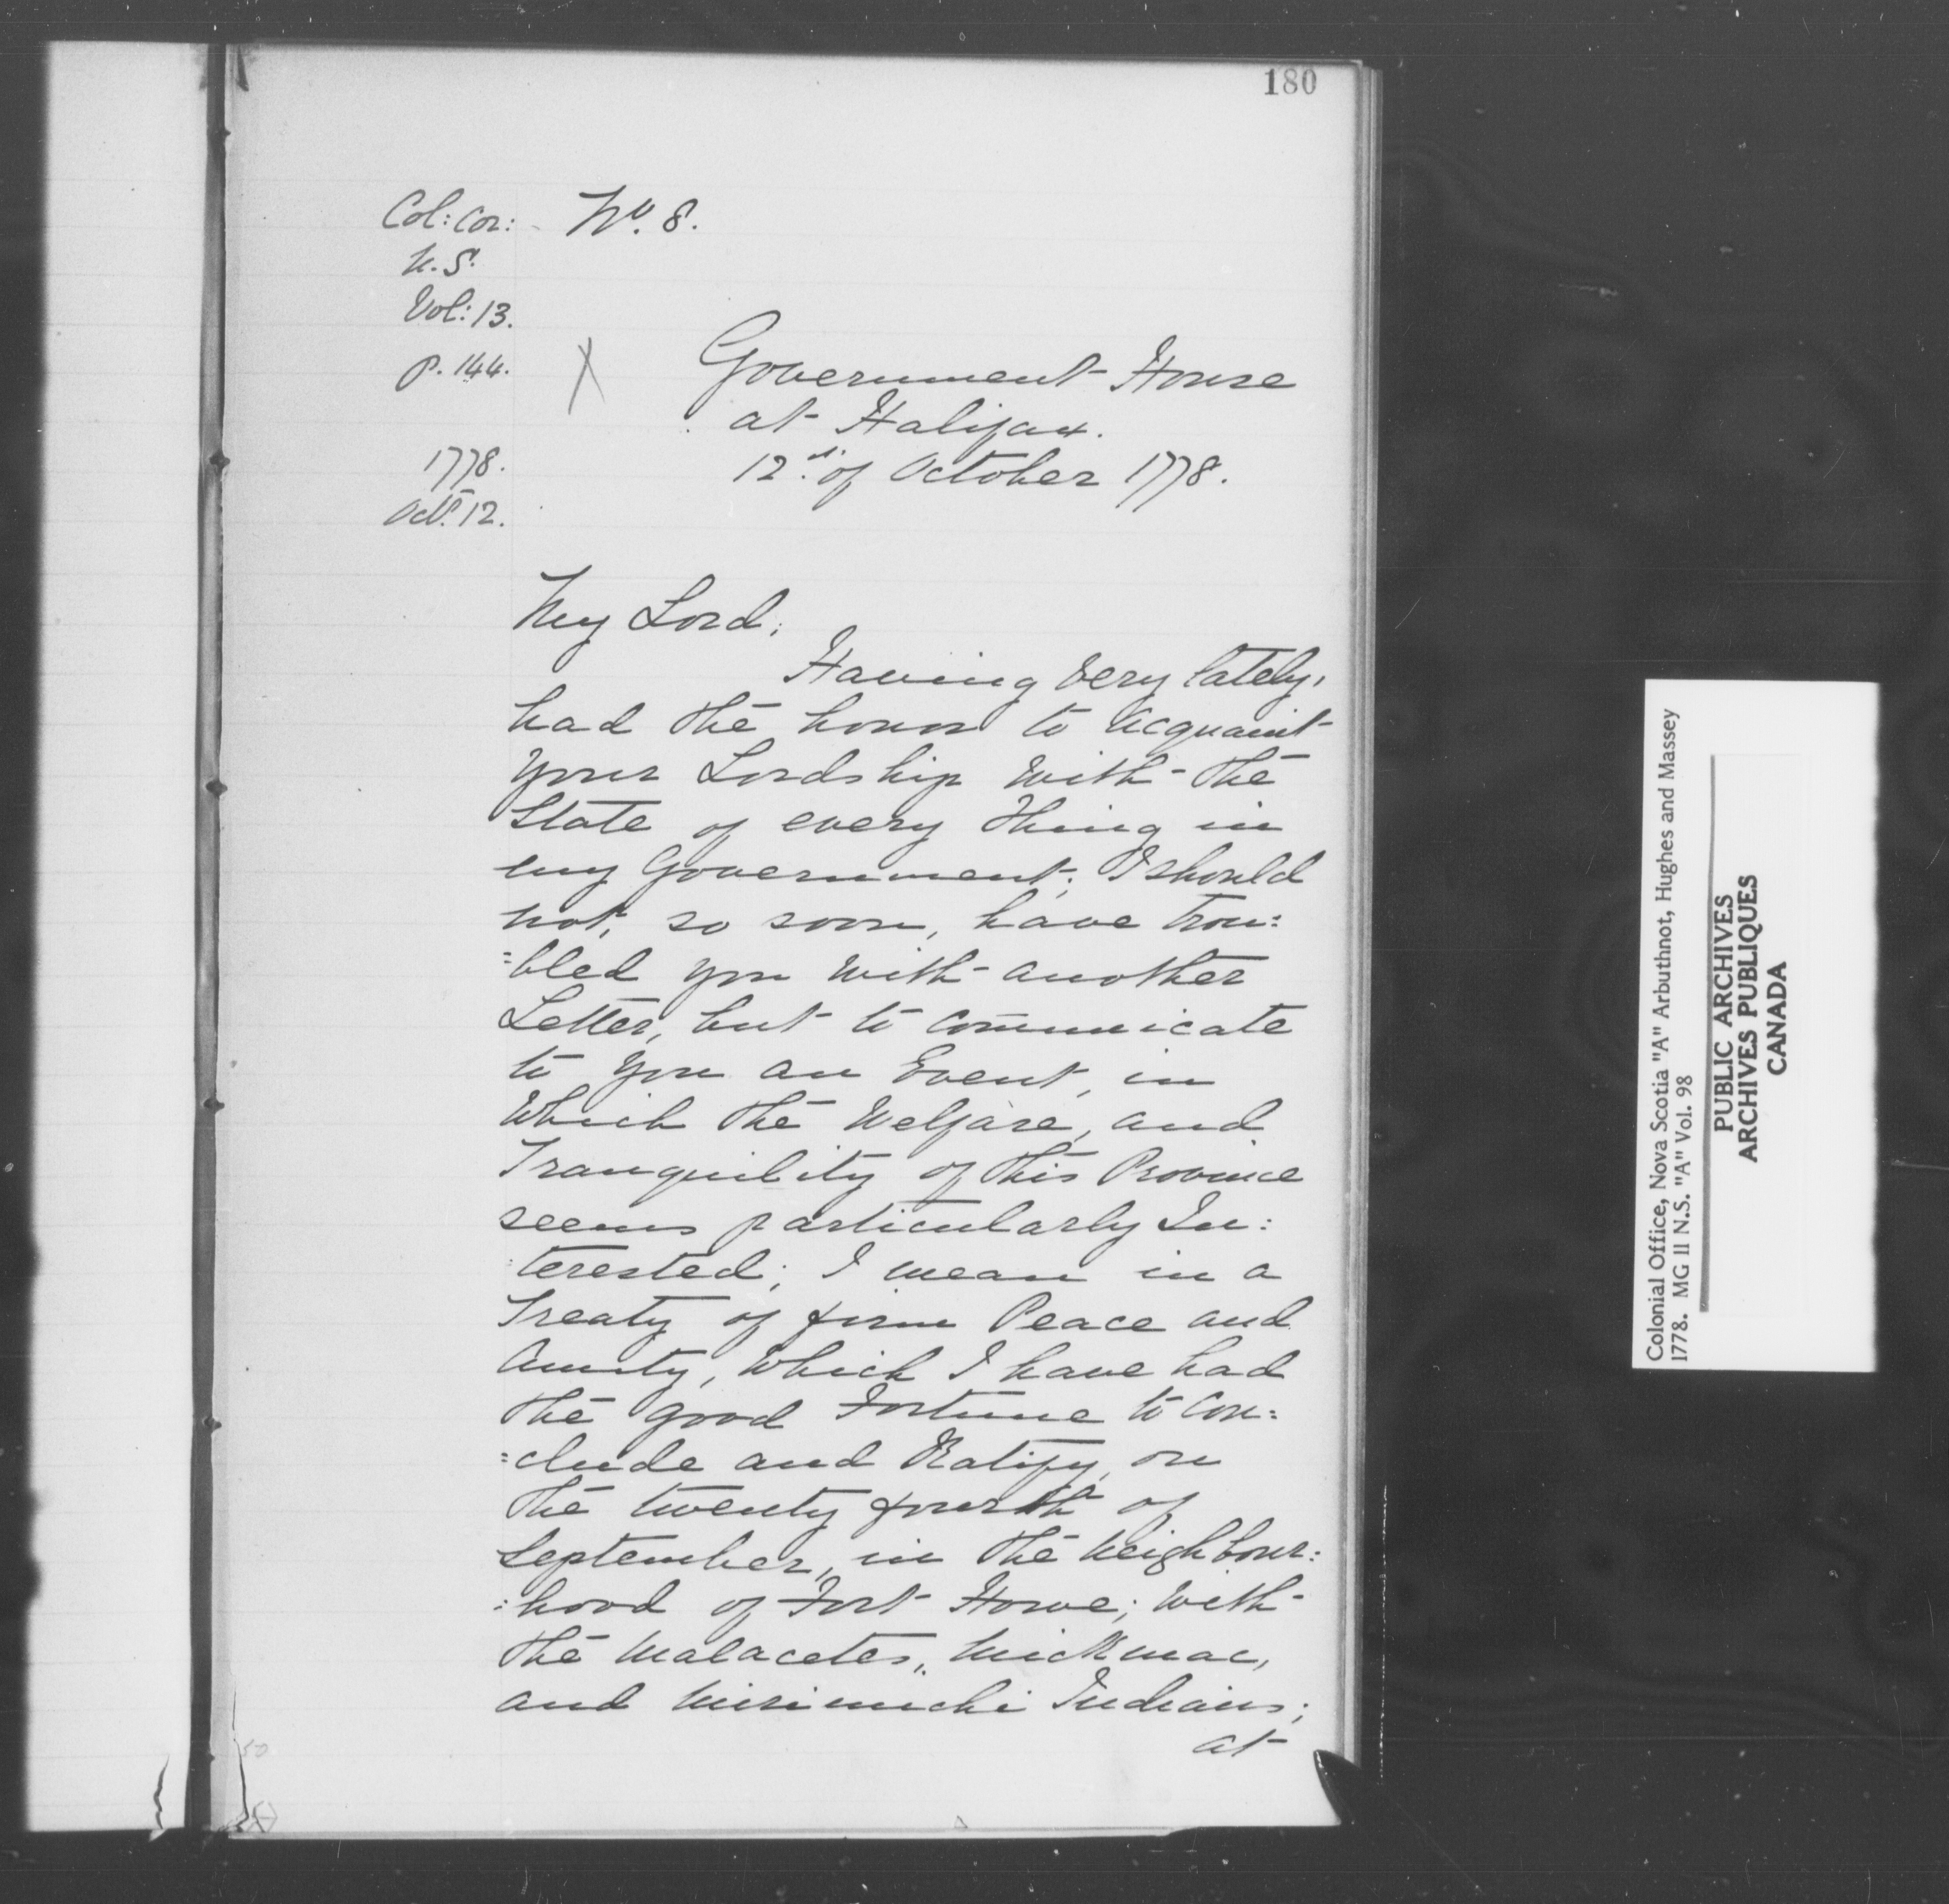 180
Col: Cor: Nº. 8.
N.S.
Vol: 13.
p. 144.
Government House
at Halifax.
1778.
12th. of October 1778.
Oct. 12.
My Lord;
Having very lately,
had the honor to acquaint
your Lordship with the
State of every thing in
my Government; I should
not, so soon, have trou:
:bled you with another
Letter, but to com̄unicate
to You an Event, in
Which the Welfare, and
Tranquility of this Province
seems particularly In:
:terested; I mean in a
Treaty of firm Peace and
Amity, Which I have had
the good Fortune to Con:
:clude and Ratify, on
the twenty fourth of
September, in the Neighbour:
:hood of Fort Howe; with
the Malacetes, Mickmac,
and Mirimichi Indians;
at
50
Colonial Office, Nova Scotia "A" Arbuthnot, Hughes and Massey
1778. MG 11 N.S. "A" Vol. 98
PUBLIC ARCHIVES
ARCHIVES PUBLIQUES
CANADA